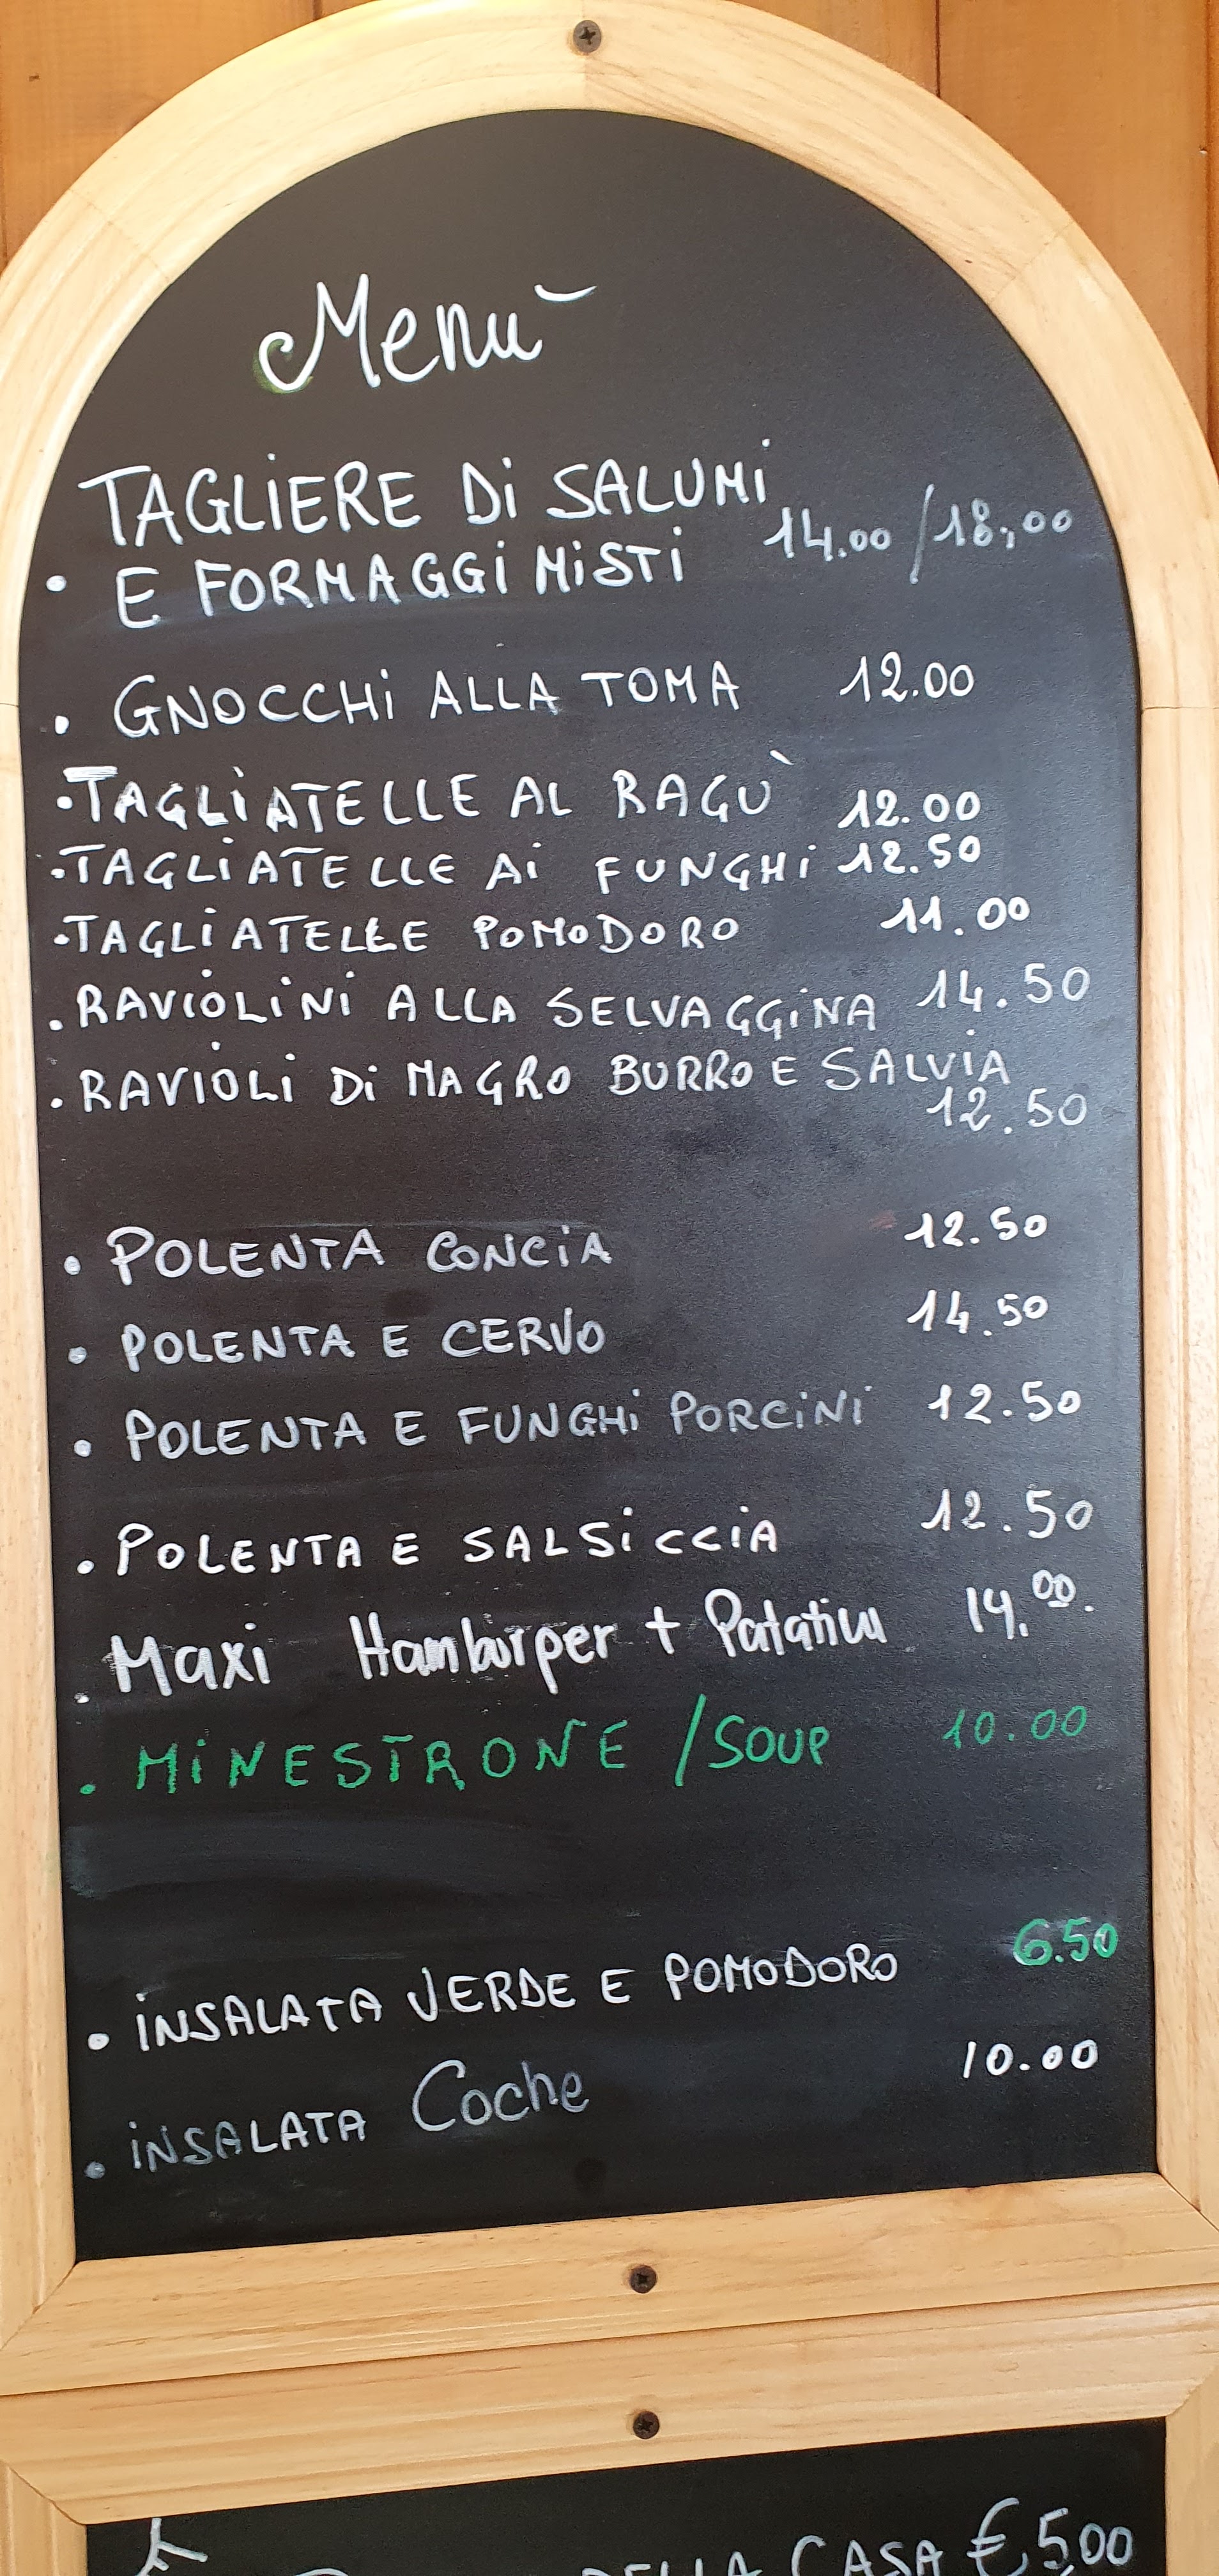 Menù
TAGLIERE Di SALUMi
• E FORMAGGi MiSTi 14.00 / 18,00
• GNOCCHi ALLA TOMA 12.00
• TAGLiATELLE AL RAGÙ 12.00
• TAGLiATELLE Ai FUNGHi 12.50
• TAGLiATELLE POMODORO 11.00
• RAViOLiNi ALLA SELVAGGiNA 14.50
• RAViOLi Di MAGRO BURRO E SALViA
12.50
• POLENTA CONCiA 12.50
• POLENTA E CERVO 14.50
• POLENTA E FUNGHi PORCiNi 12.50
• POLENTA E SALSiCCiA 12.50
• Maxi Hamburger + Patatine 14.00.
• MiNESTRONE / SOUP 10.00
• iNSALATA VERDE E POMODORO 6.50
• iNSALATA Coche 10.00
DELLA CASA € 500